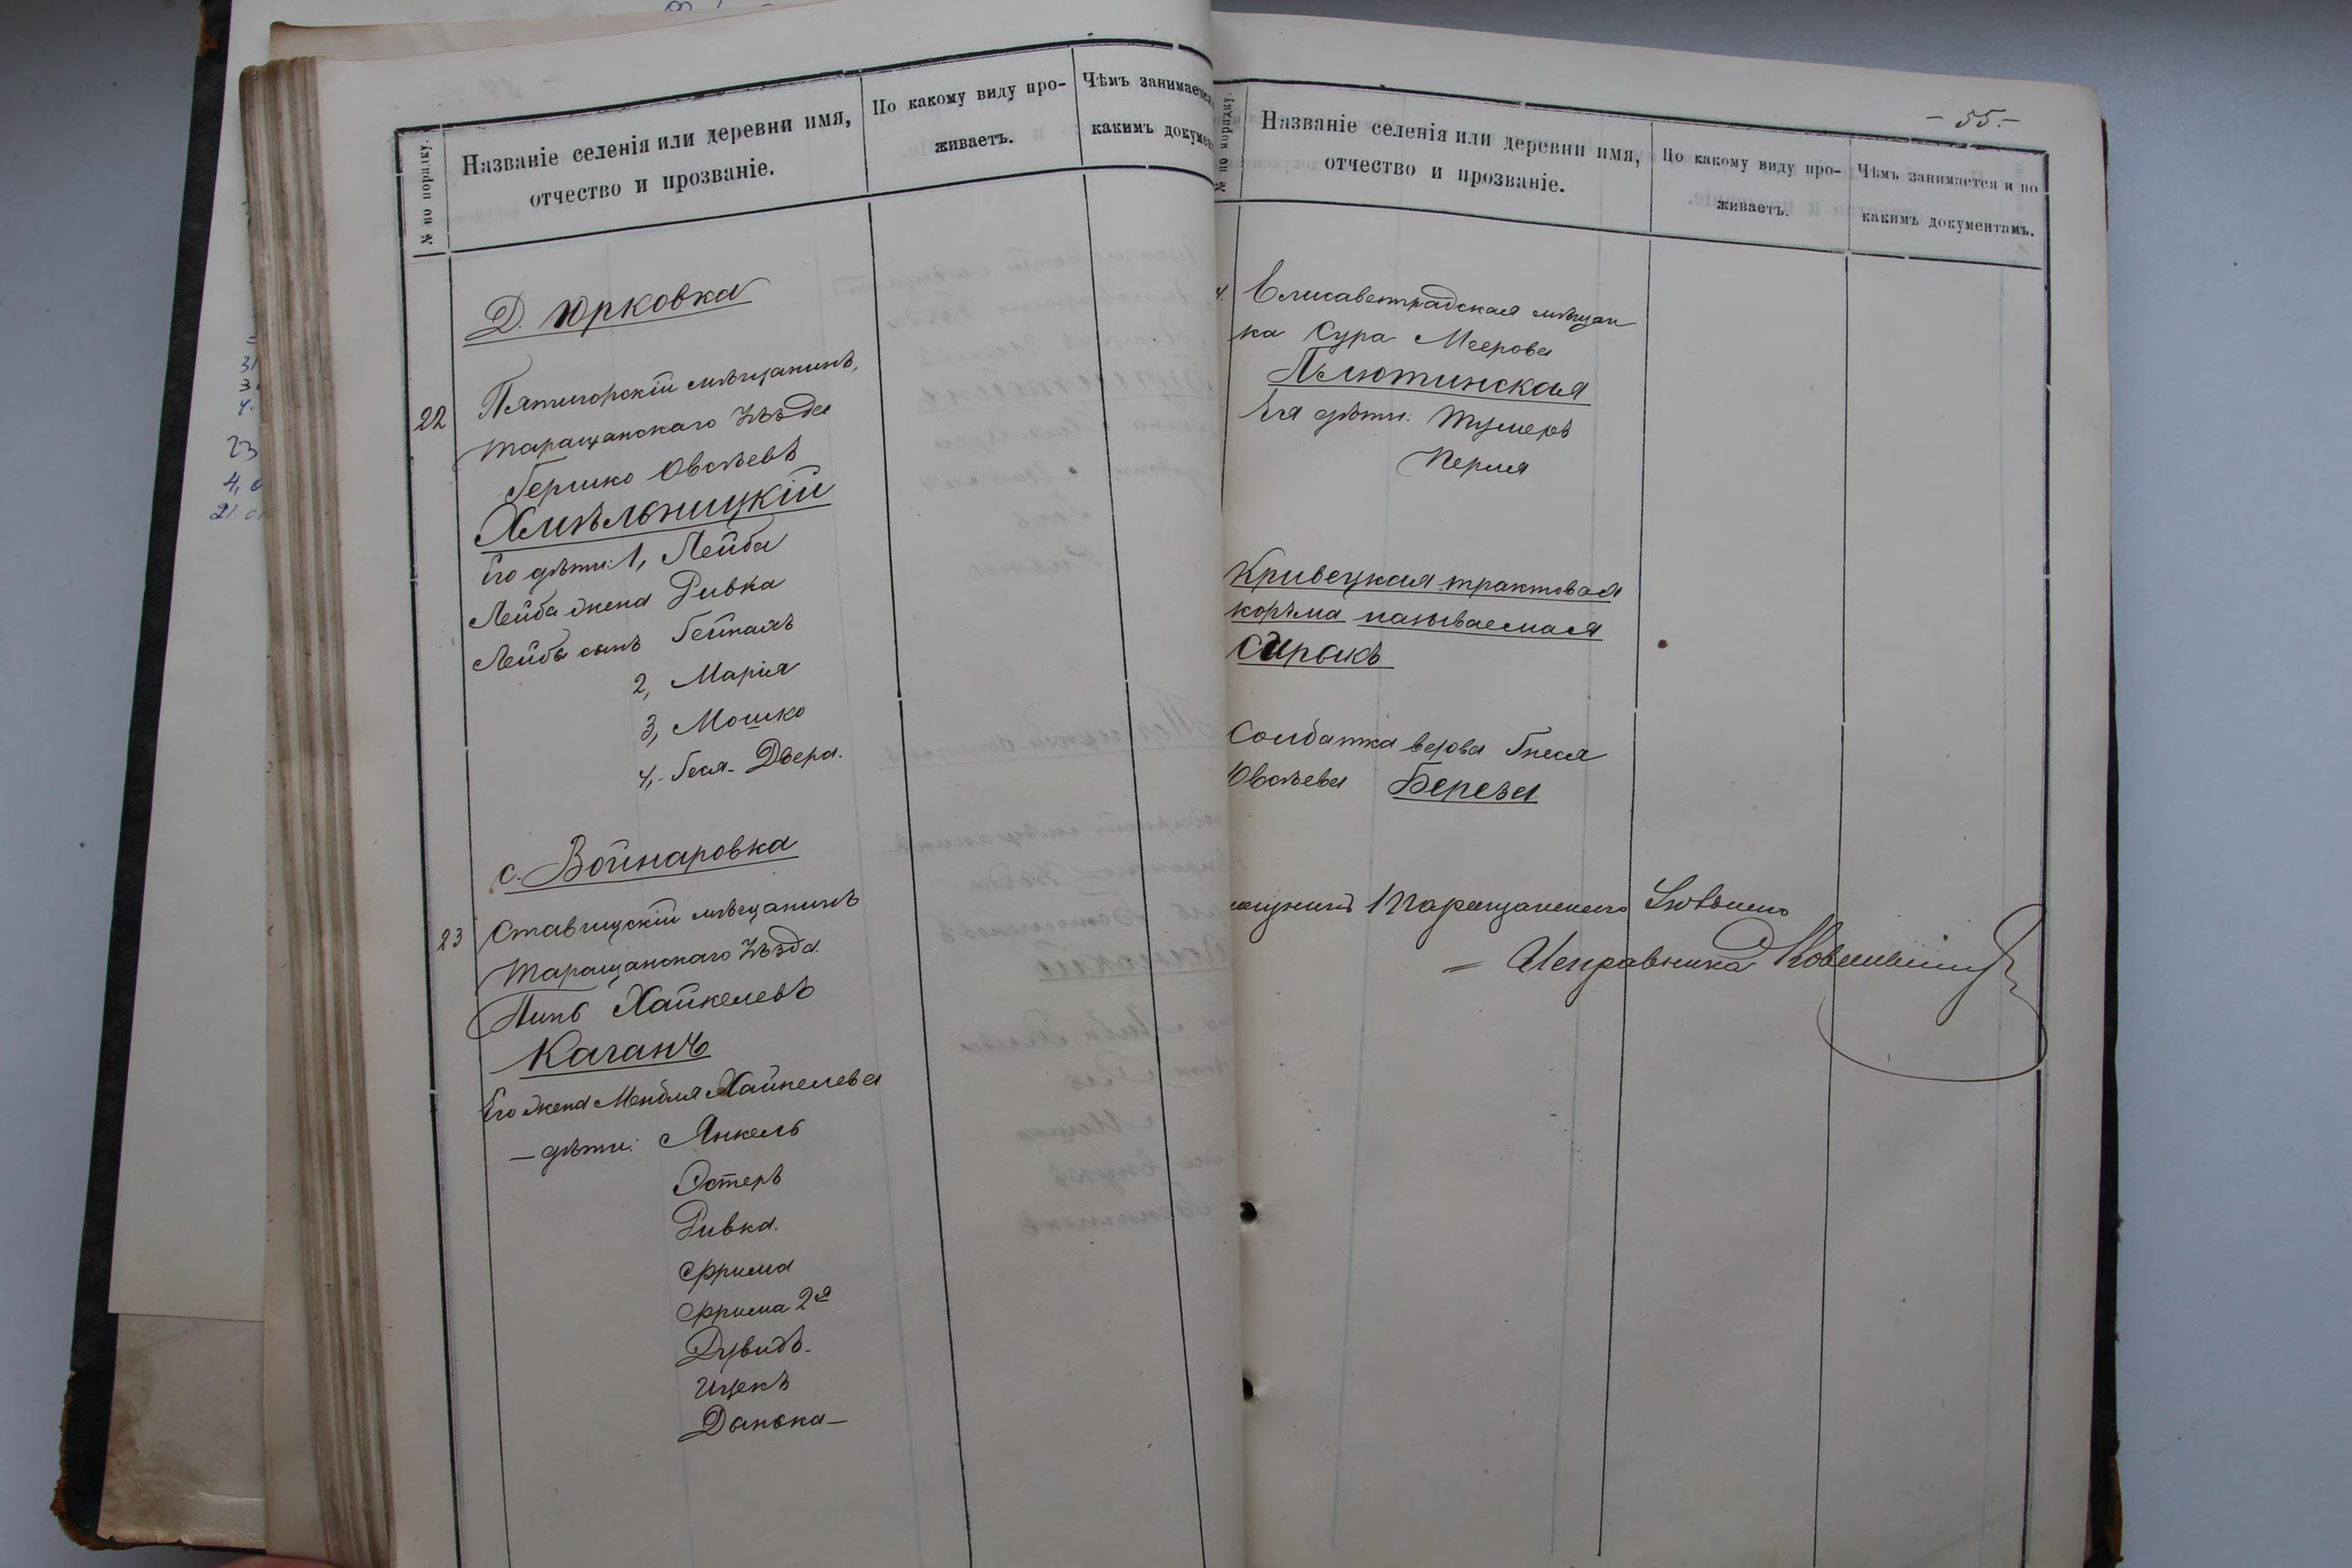 № по порядку.
Названіе селенія или деревни имя,
отчество и прозваніе.
По какому виду про-
живаетъ.
Чѣмъ занимается
какимъ докумен
Д. Юрковка
22
Пятигорскій мѣщанинъ,
Таращанскаго Уѣзда
Гершко Овсѣевъ
Хмѣльницкій
Его дѣти: 1, Лейба
Лейба жена Ривка
Лейбы сынъ
2, Марія
3, Мошко
4, Бася-Двера.
с. Войнаровка
23
Ставищскій мѣщанинъ
Таращанскаго Уѣзда
Хайкелевъ
Каганъ
Его жена Хайкелева
— дѣти: Янкель
Эстеръ
Ривка.
Фрима
Фрима 2я
Дувидъ-
Ицекъ
Данька—
- 55.-
№ по порядку.
Названіе селенія или деревни имя,
отчество и прозваніе.
По какому виду про-
живаетъ.
Чѣмъ занимается и по
какимъ документамъ.
4.
Елисаветградская мѣщан
ка Сура Меерова
Плютинская
Ея дѣти:
Перля
Кривецкая трактовая
корчма называемая
Сиракъ
Солдатка вдова Гнеся
Овсѣева Береза
Таращанскаго Уѣзднаго
— Исправника